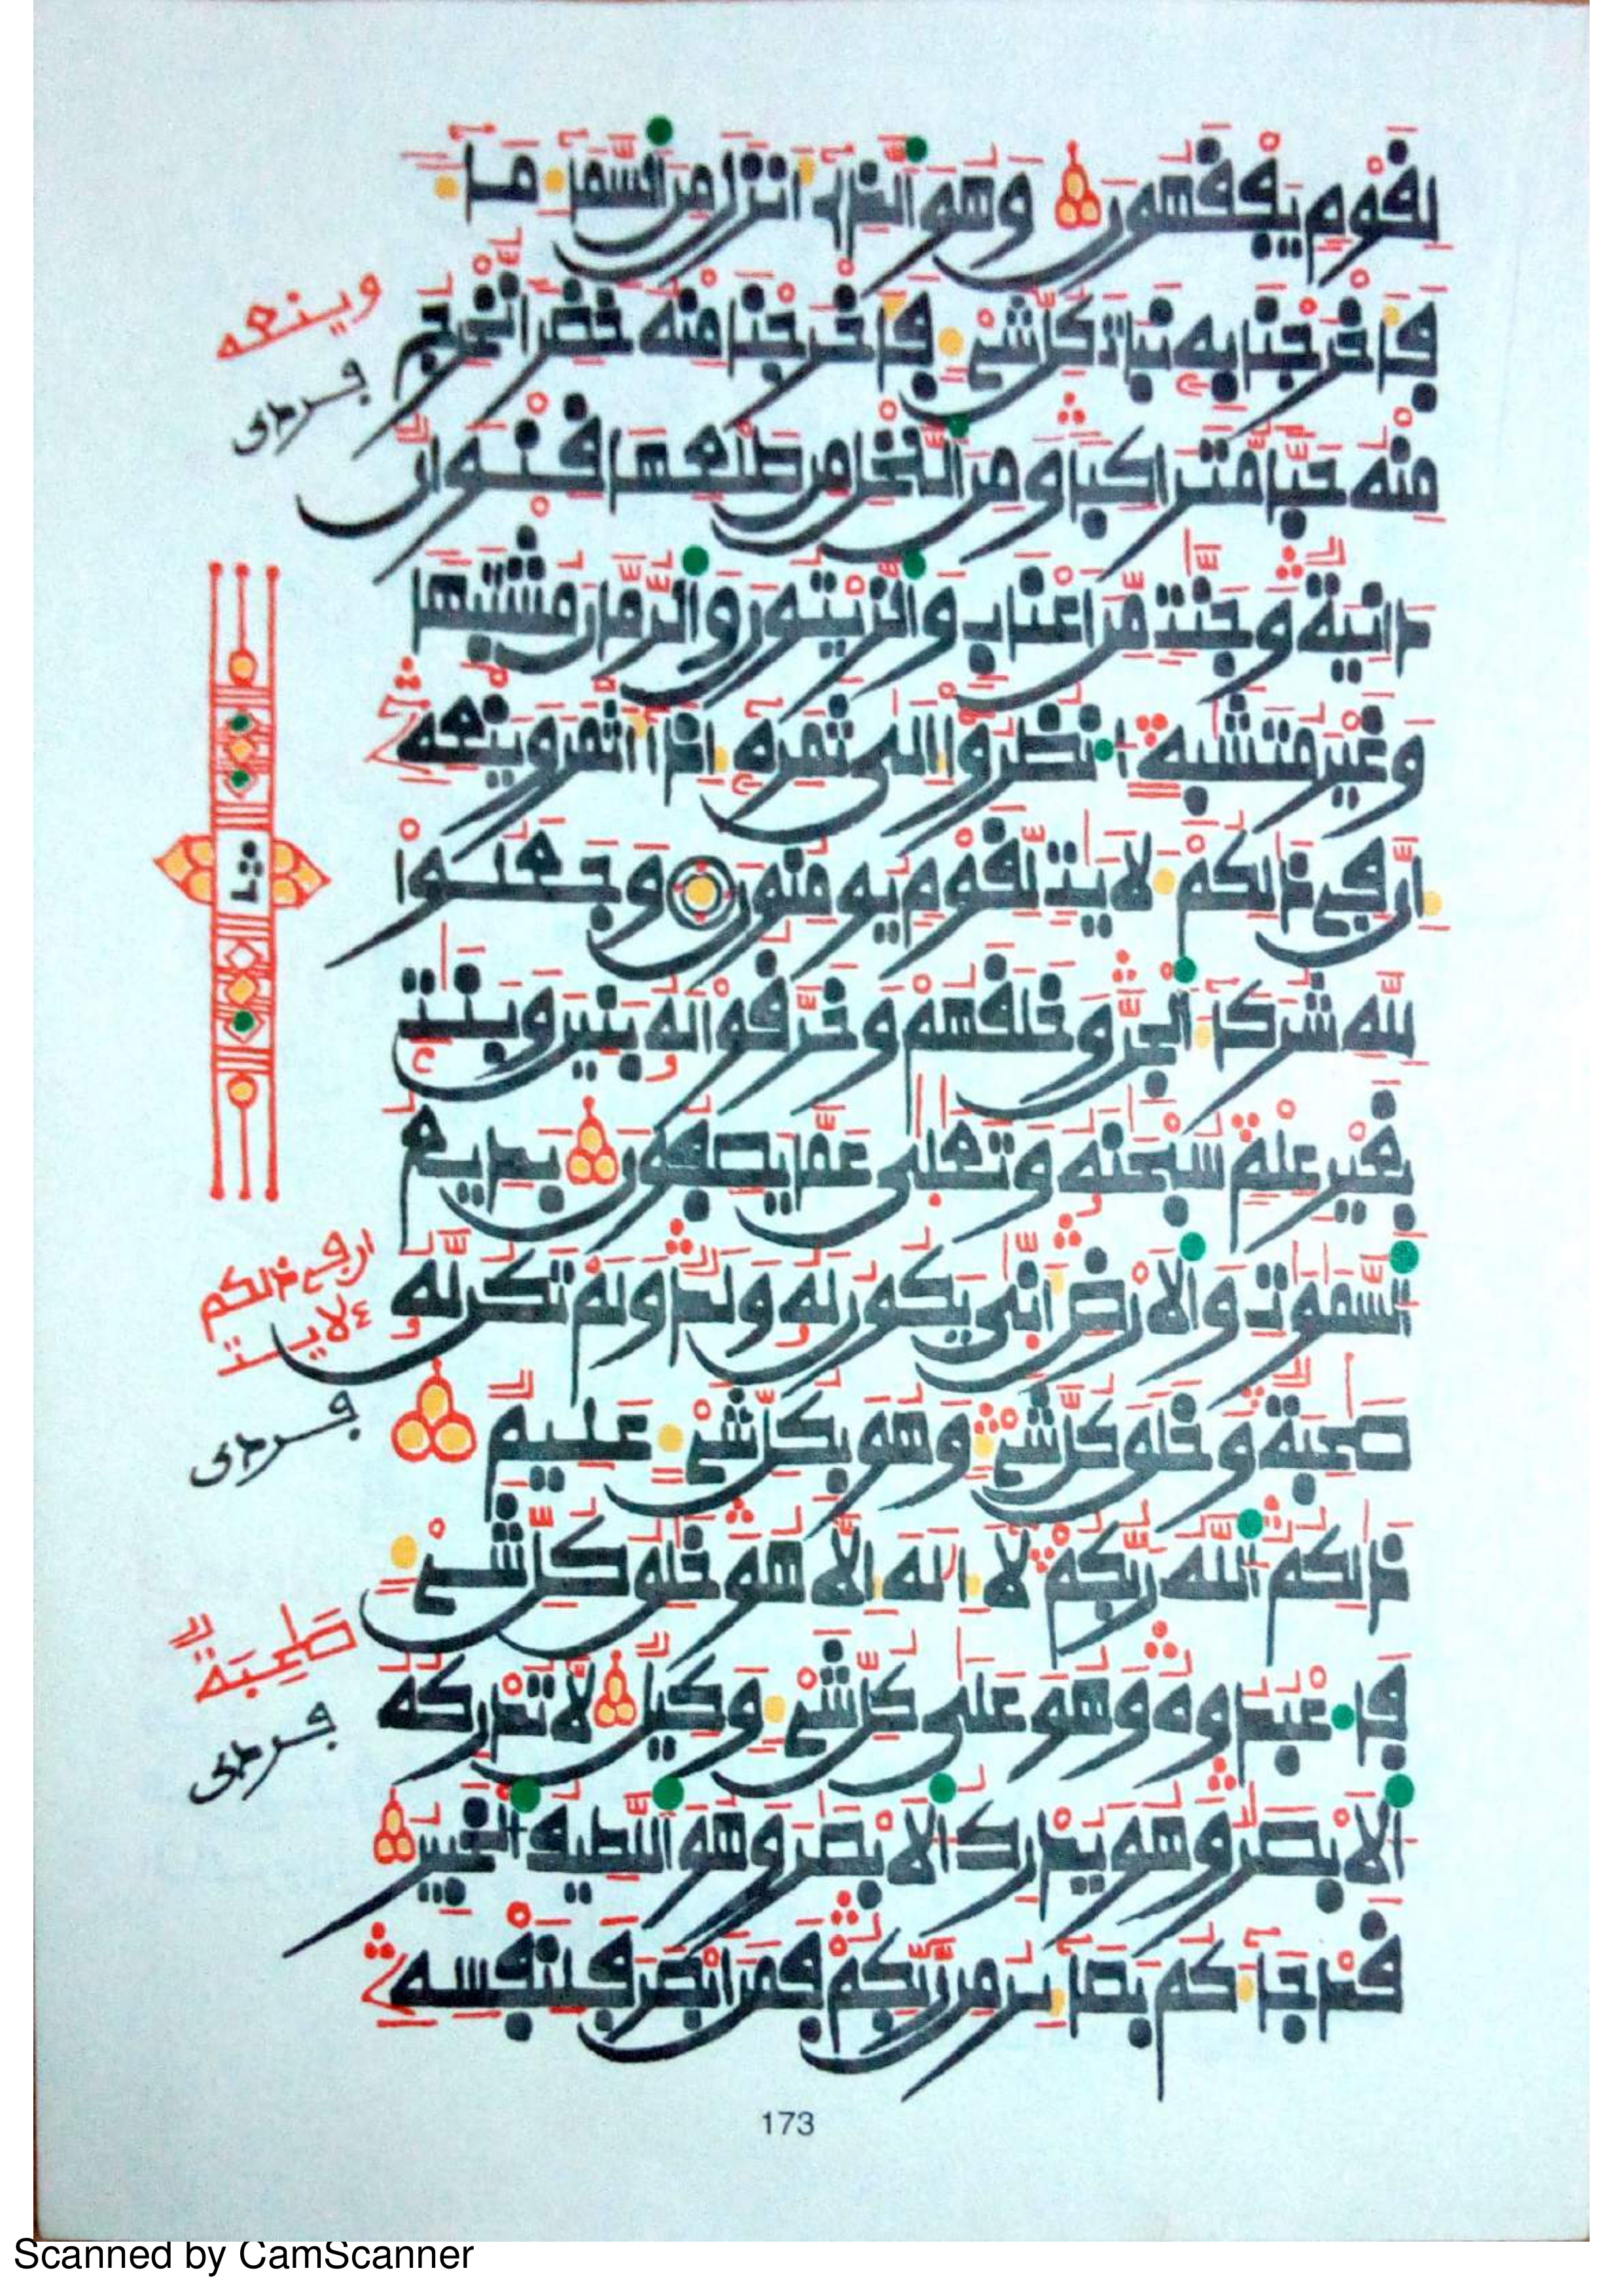 لقوم يفقهون وهو الذي أنزل من السماء ماء
فأخرجنا به نبات كل شيء فأخرجنا منه خضرا نخرج
منه حبا متراكبا ومن النخل من طلعها قنوان
دانية وجنت من أعناب والزيتون والرمان مشتبها
وغير متشبه انظروا إلى ثمره إذا أثمر وينعه
إن في ذالكم لأيت لقوم يومنون وجعلوا
لله شركاء الجن وخلقهم وخرقوا له بنين وبنت
بغير علم سبحنه وتعلى عما يصفون بديع
السموت والأرض أنى يكون له ولد ولم تكن له
صحبة وخلق كل شيء وهو بكل شيء عليم
ذالكم الله ربكم لا إله إلا هو خلق كل شيء
فاعبدوه وهو على كل شيء وكيل لا تدركه
الأبصر وهو يدرك الأبصر وهو اللطيف الخبير
قد جاءكم بصائر من ربكم فمن أبصر فلنفسه
وينعه
فردى
ثمن
ان في ذالكم
ءلايت
فردى
صحبة
فردى
173
Scanned by CamScanner